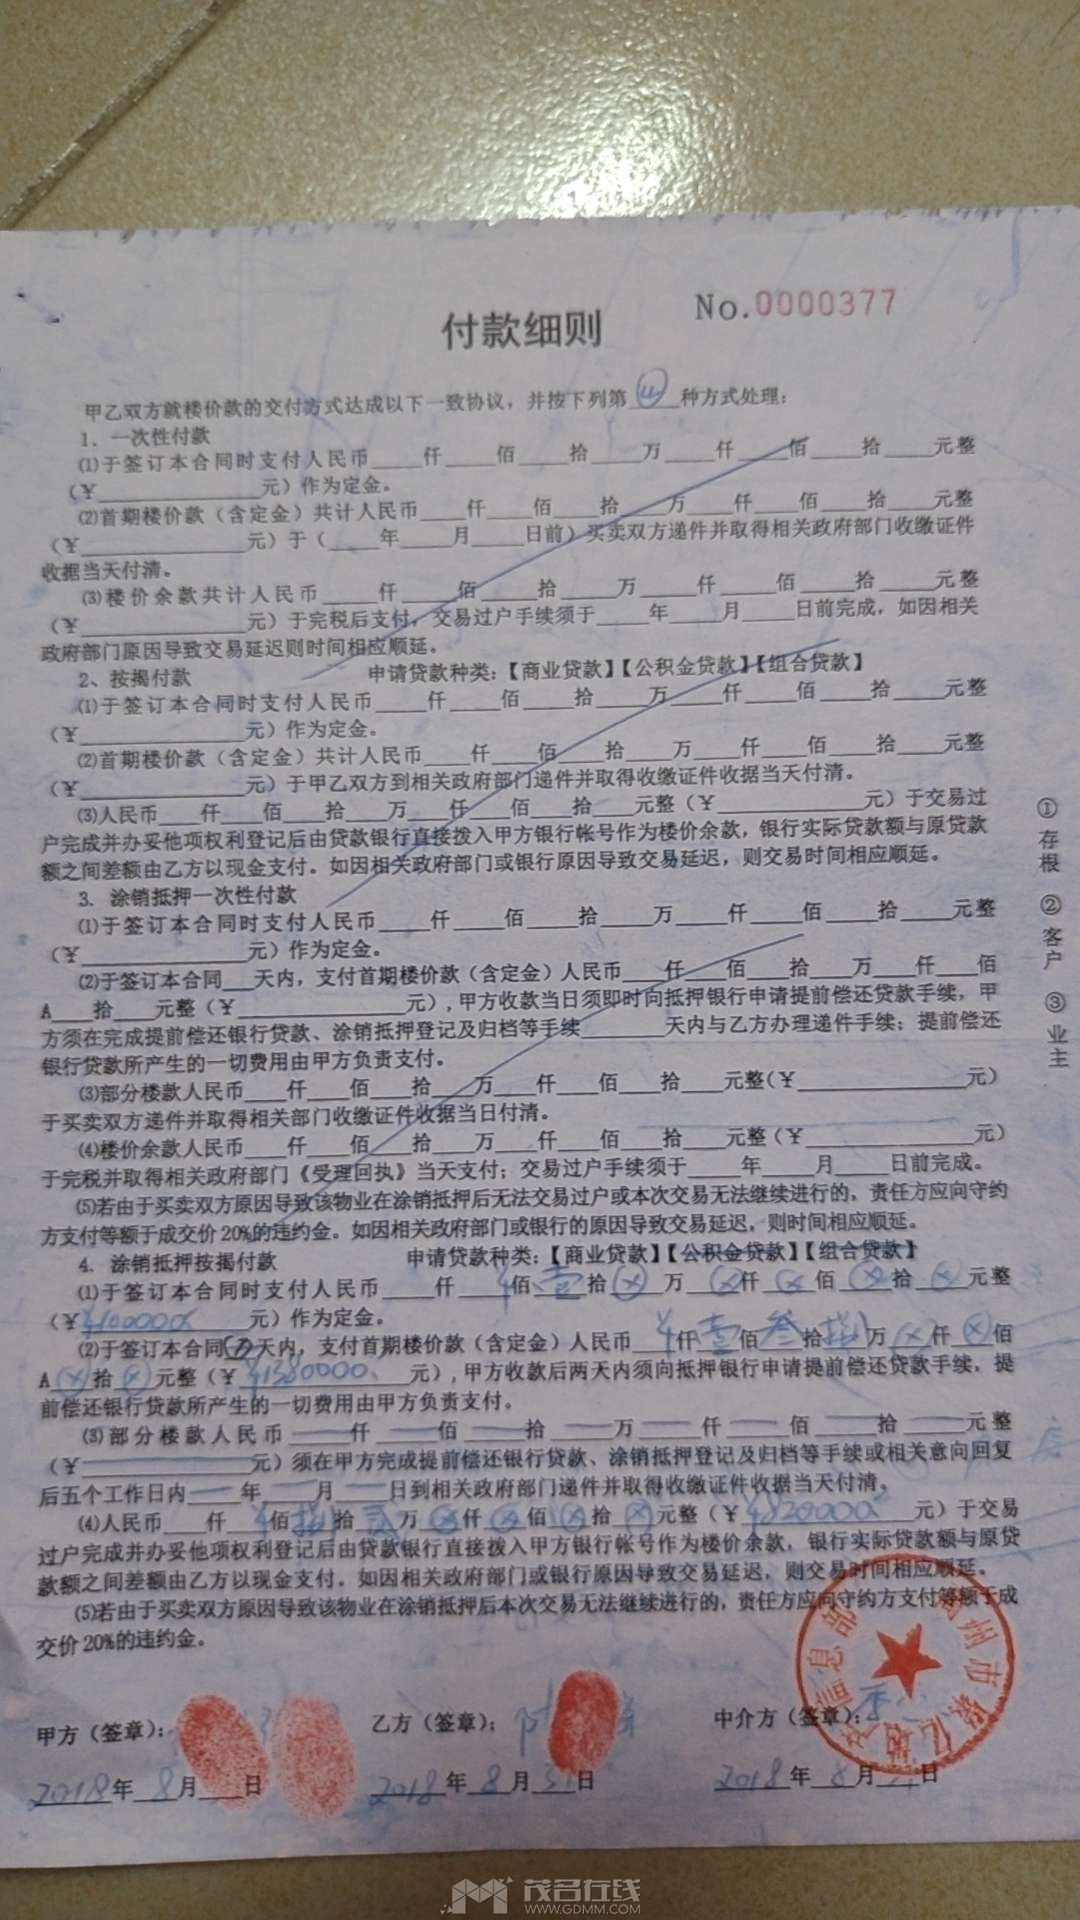 付款细则
No.0000377
甲乙双方就楼价款的交付方式达成以下一致协议，并按下列第 四 种方式处理：
1．一次性付款
⑴于签订本合同时支付人民币____仟____佰____拾____万____仟____佰____拾____元整
（￥____________元）作为定金。
⑵首期楼价款（含定金）共计人民币____仟____佰____拾____万____仟____佰____拾____元整
（￥____________元）于（____年____月____日前）买卖双方递件并取得相关政府部门收缴证件
收据当天付清。
⑶楼价余款共计人民币____仟____佰____拾____万____仟____佰____拾____元整
（￥____________元）于完税后支付，交易过户手续须于____年____月____日前完成，如因相关
政府部门原因导致交易延迟则时间相应顺延。
2、按揭付款 申请贷款种类：【商业贷款】【公积金贷款】【组合贷款】
⑴于签订本合同时支付人民币____仟____佰____拾____万____仟____佰____拾____元整
（￥____________元）作为定金。
⑵首期楼价款（含定金）共计人民币____仟____佰____拾____万____仟____佰____拾____元整
（￥____________元）于甲乙双方到相关政府部门递件并取得收缴证件收据当天付清。
⑶人民币____仟____佰____拾____万____仟____佰____拾____元整（￥____________元）于交易过
户完成并办妥他项权利登记后由贷款银行直接拨入甲方银行帐号作为楼价余款，银行实际贷款额与原贷款
额之间差额由乙方以现金支付。如因相关政府部门或银行原因导致交易延迟，则交易时间相应顺延。
3．涂销抵押一次性付款
⑴于签订本合同时支付人民币____仟____佰____拾____万____仟____佰____拾____元整
（￥____________元）作为定金。
⑵于签订本合同___天内，支付首期楼价款（含定金）人民币____仟____佰____拾____万____仟____佰
A____拾____元整（￥____________元）,甲方收款当日须即时向抵押银行申请提前偿还贷款手续，甲
方须在完成提前偿还银行贷款、涂销抵押登记及归档等手续________天内与乙方办理递件手续；提前偿还
银行贷款所产生的一切费用由甲方负责支付。
⑶部分楼款人民币____仟____佰____拾____万____仟____佰____拾____元整(￥____________元）
于买卖双方递件并取得相关部门收缴证件收据当日付清。
⑷楼价余款人民币____仟____佰____拾____万____仟____佰____拾____元整（￥____________元）
于完税并取得相关政府部门《受理回执》当天支付；交易过户手续须于____年____月____日前完成。
⑸若由于买卖双方原因导致该物业在涂销抵押后无法交易过户或本次交易无法继续进行的，责任方应向守约
方支付等额于成交价20%的违约金。如因相关政府部门或银行的原因导致交易延迟，则时间相应顺延。
4．涂销抵押按揭付款 申请贷款种类：【商业贷款】【公积金贷款】【组合贷款】
⑴于签订本合同时支付人民币____仟 ￥ 佰 壹 拾 ⊗ 万 ⊗ 仟 ⊗ 佰 ⊗ 拾 ⊗ 元整
（￥ ¥100000 元）作为定金。
⑵于签订本合同 天内，支付首期楼价款（含定金）人民币 ￥ 仟 壹 佰 叁 拾 捌 万 ⊗ 仟 ⊗ 佰
A ⊗ 拾 ⊗ 元整（￥ ¥1380000 元）,甲方收款后两天内须向抵押银行申请提前偿还贷款手续，提
前偿还银行贷款所产生的一切费用由甲方负责支付。
⑶部分楼款人民币____仟____佰____拾____万____仟____佰____拾____元整
（￥____________元）须在甲方完成提前偿还银行贷款、涂销抵押登记及归档等手续或相关意向回复
后五个工作日内____年____月____日到相关政府部门递件并取得收缴证件收据当天付清。
⑷人民币____仟 ￥ 佰 捌 拾 贰 万 ⊗ 仟 ⊗ 佰 ⊗ 拾 ⊗ 元整（￥ ¥820000 元）于交易
过户完成并办妥他项权利登记后由贷款银行直接拨入甲方银行帐号作为楼价余款，银行实际贷款额与原贷
款额之间差额由乙方以现金支付．如因相关政府部门或银行原因导致交易延迟，则交易时间相应顺延。
⑸若由于买卖双方原因导致该物业在涂销抵押后本次交易无法继续进行的，责任方应向守约方支付等额于成
交价20%的违约金。
①存根 ②客户 ③业主
甲方（签章）： 乙方（签章）： 中介方（签章）：
2018年 8月 日 2018年 8月 31日 2018年 8月 日
州市 信息部
茂名在线
WWW.GDMM.COM